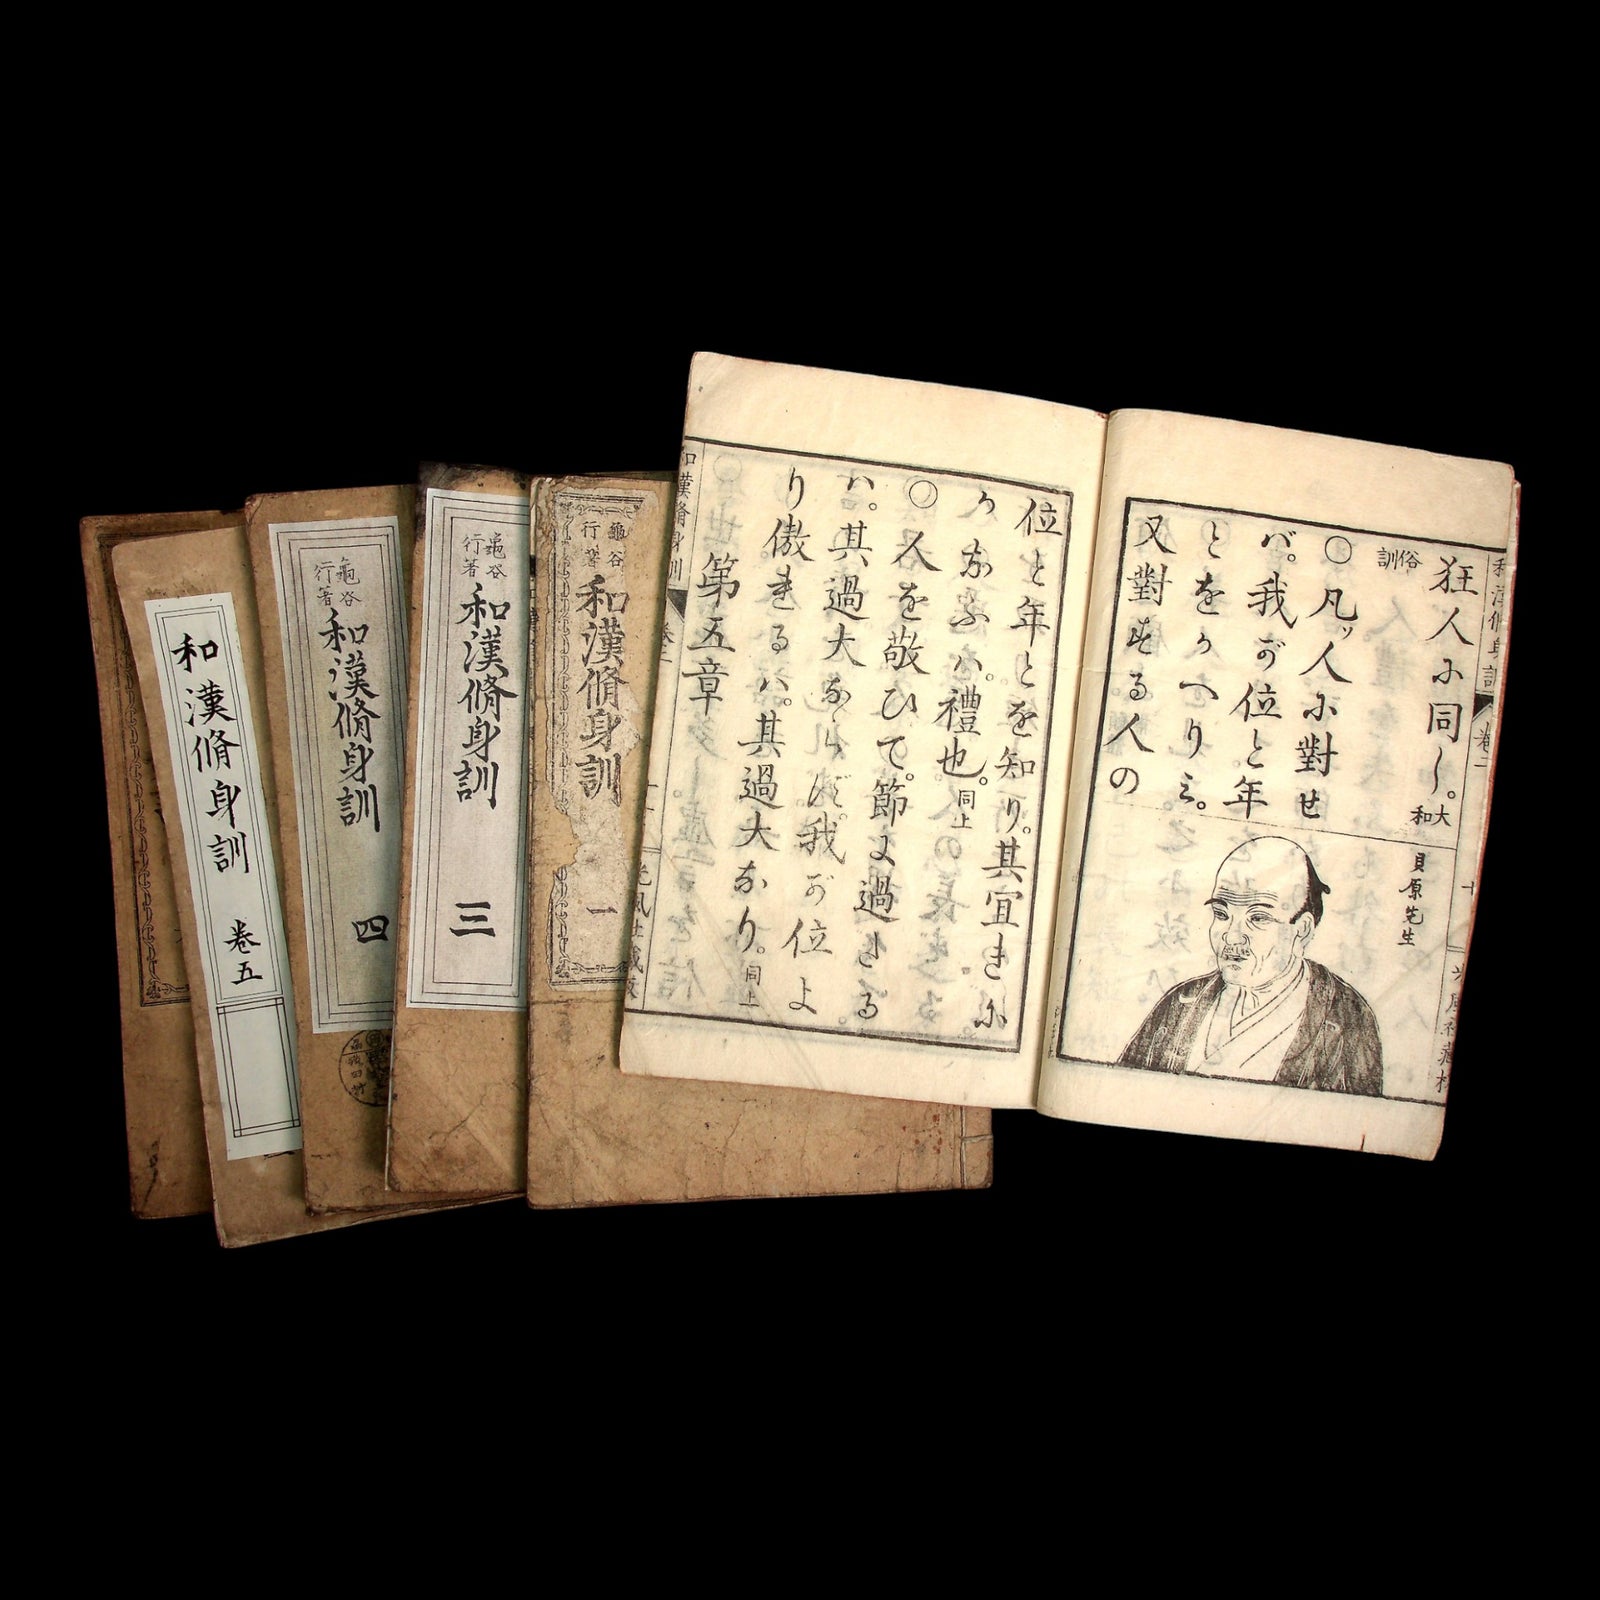 和漢脩身訓
巻五
龜谷
行著
和漢脩身訓
四
龜谷
行著
和漢脩身訓
三
龜谷
行著
和漢脩身訓
一
狂人ニ同し。大和
俗訓
〇凡ソ人ニ對せ
バ。我が位と年
とをかへりミ。
又對する人の
貝原先生
位と年とを知り。其宜きに
かなふハ。禮也。同上
〇人を敬ひて。節に過きる
ハ。其過大ならバ。我が位よ
り傲れるハ。其過大なり。同上
第五章
和漢脩身訓